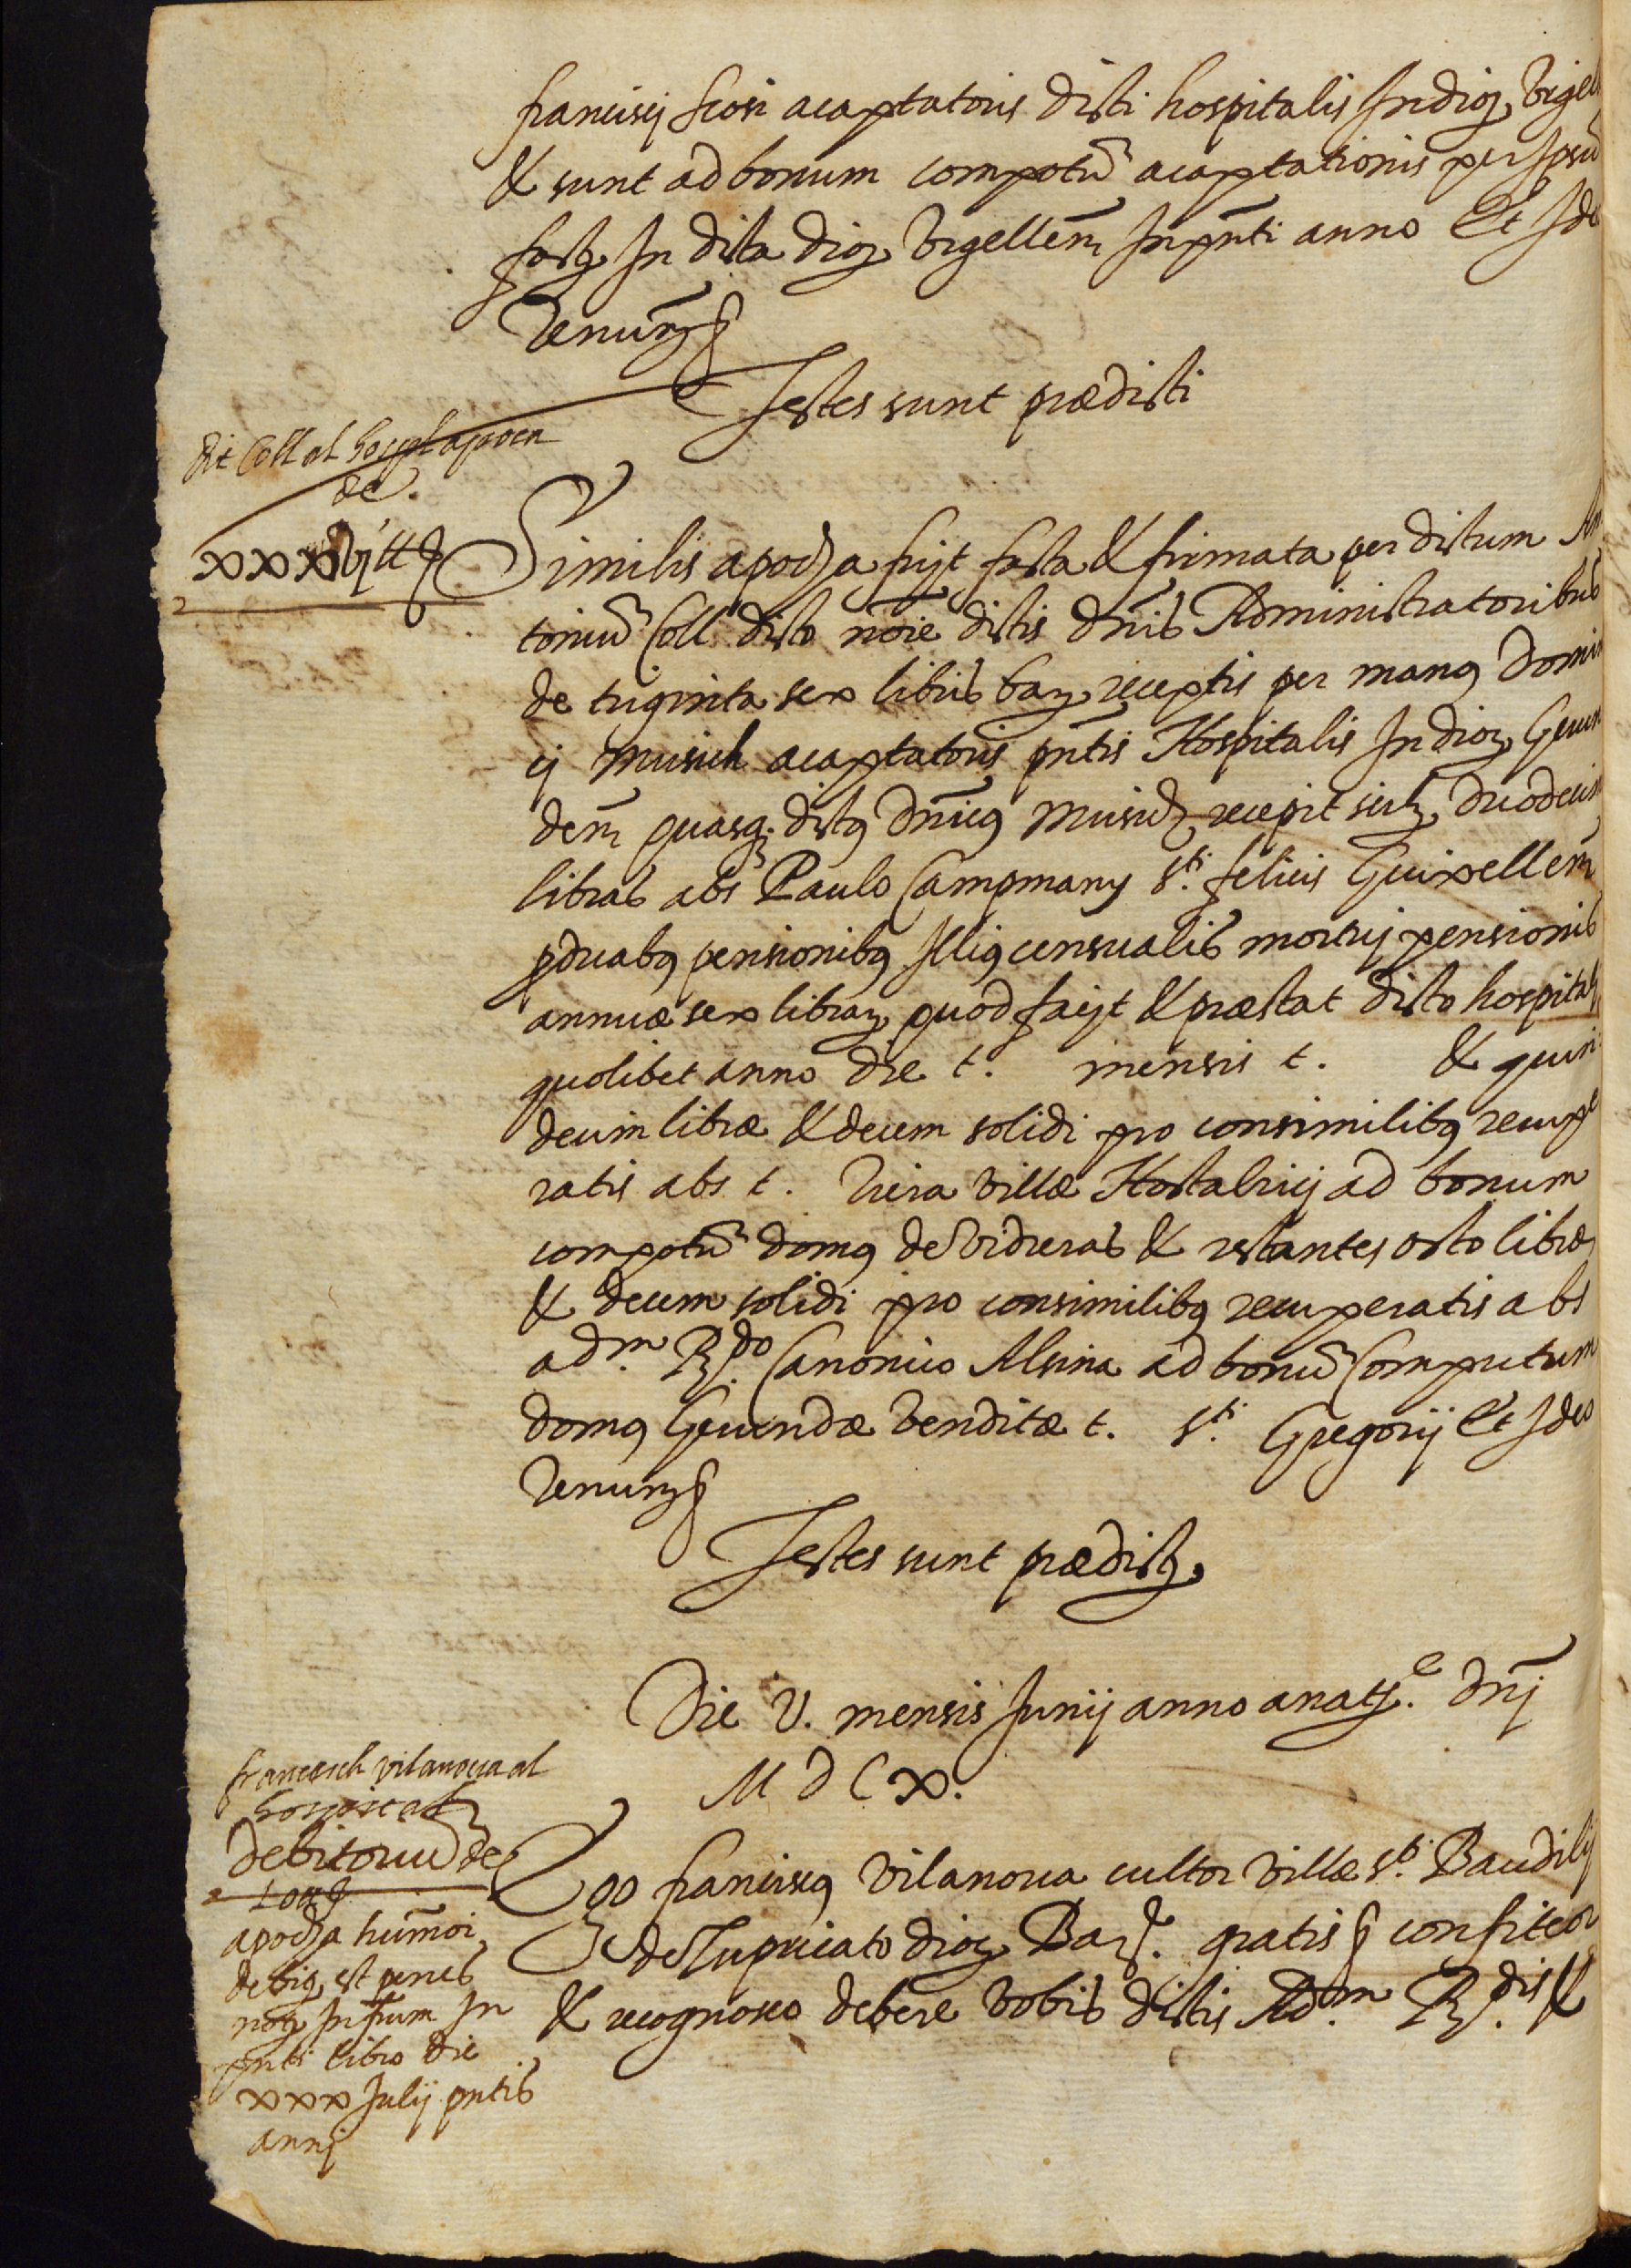 francisci scosi acaptatoris dicti hospitalis In dioc. Vrgell
& sunt ad bonum compotũ acaptationis per Ipsũ
factę In dicta dioc. Vrgelleñ In pñti anno Et Ideo
Renunc. &
Testes sunt prædicti
dit Coll al hospl apoca
de.
xxxvj ll &
Similis apocha fuit facta & firmata per dictum An
toniũ Coll dicto nõie dictis dñis Administratoribus
de triginta sex libris bar. receptis per manus Domin
ci Musich acaptatoris pñtis Hospitalis In dioc. Gerun
deñ quasq. dictus Dñicus Musich recepit scilz. duodecim
libras abs Paulo Campmany Sti. felicis Guixelleñ
p duabus pensionibus Illius censualis mortui pensionis
annuæ sex librarz. quod facit & præstat dicto hospitali
quolibet anno die t. mensis t. & quin
decim libræ & decem solidi pro consimilibus recupe
ratis abs t. Riera villæ Hostalrici ad bonum
compotũ domus de Vidreras & restantes octo libræ
& decem solidi pro consimilibus recuperatis abs
adm. R.do Canonico Alsina ad bonũ Computum
domus Gerundæ venditæ t. Sti. Gregorij Et Ideo
Renunc. &
Testes sunt prædicti.
Die V. mensis Junij anno a natte. Dñj
M D C X.
francesch vilanoua al
hospital
debitoriũ de
apocha hum̃oi
debiti est penes
not. Infrum In
pñti libro die
xxx Julij pñtis
annj
Ego franciscus Vilanoua cultor villæ Sti. Baudilij
de Lupricato dioc. Bar. gratis & confiteor
& recognosco debere vobis dictis Adm. R.dis &